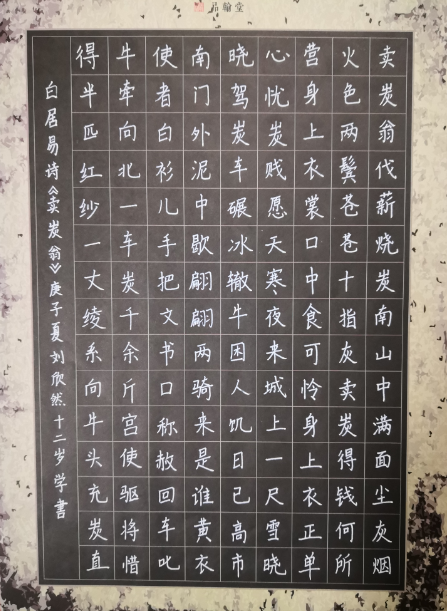 品翰堂
卖炭翁伐薪烧炭南山中满面尘灰烟
火色两鬓苍苍十指灰卖炭得钱何所
营身上衣裳口中食可怜身上衣正单
心忧炭贱愿天寒夜来城上一尺雪晓
晓驾炭车碾冰辙牛困人饥日已高市
南门外泥中歇翩翩两骑来是谁黄衣
使者白衫儿手把文书口称赦回车叱
牛牵向北一车炭千余斤宫使驱将惜
得半匹红纱一丈绫系向牛头充炭直
白居易诗《卖炭翁》庚子夏刘欣然十二岁学書